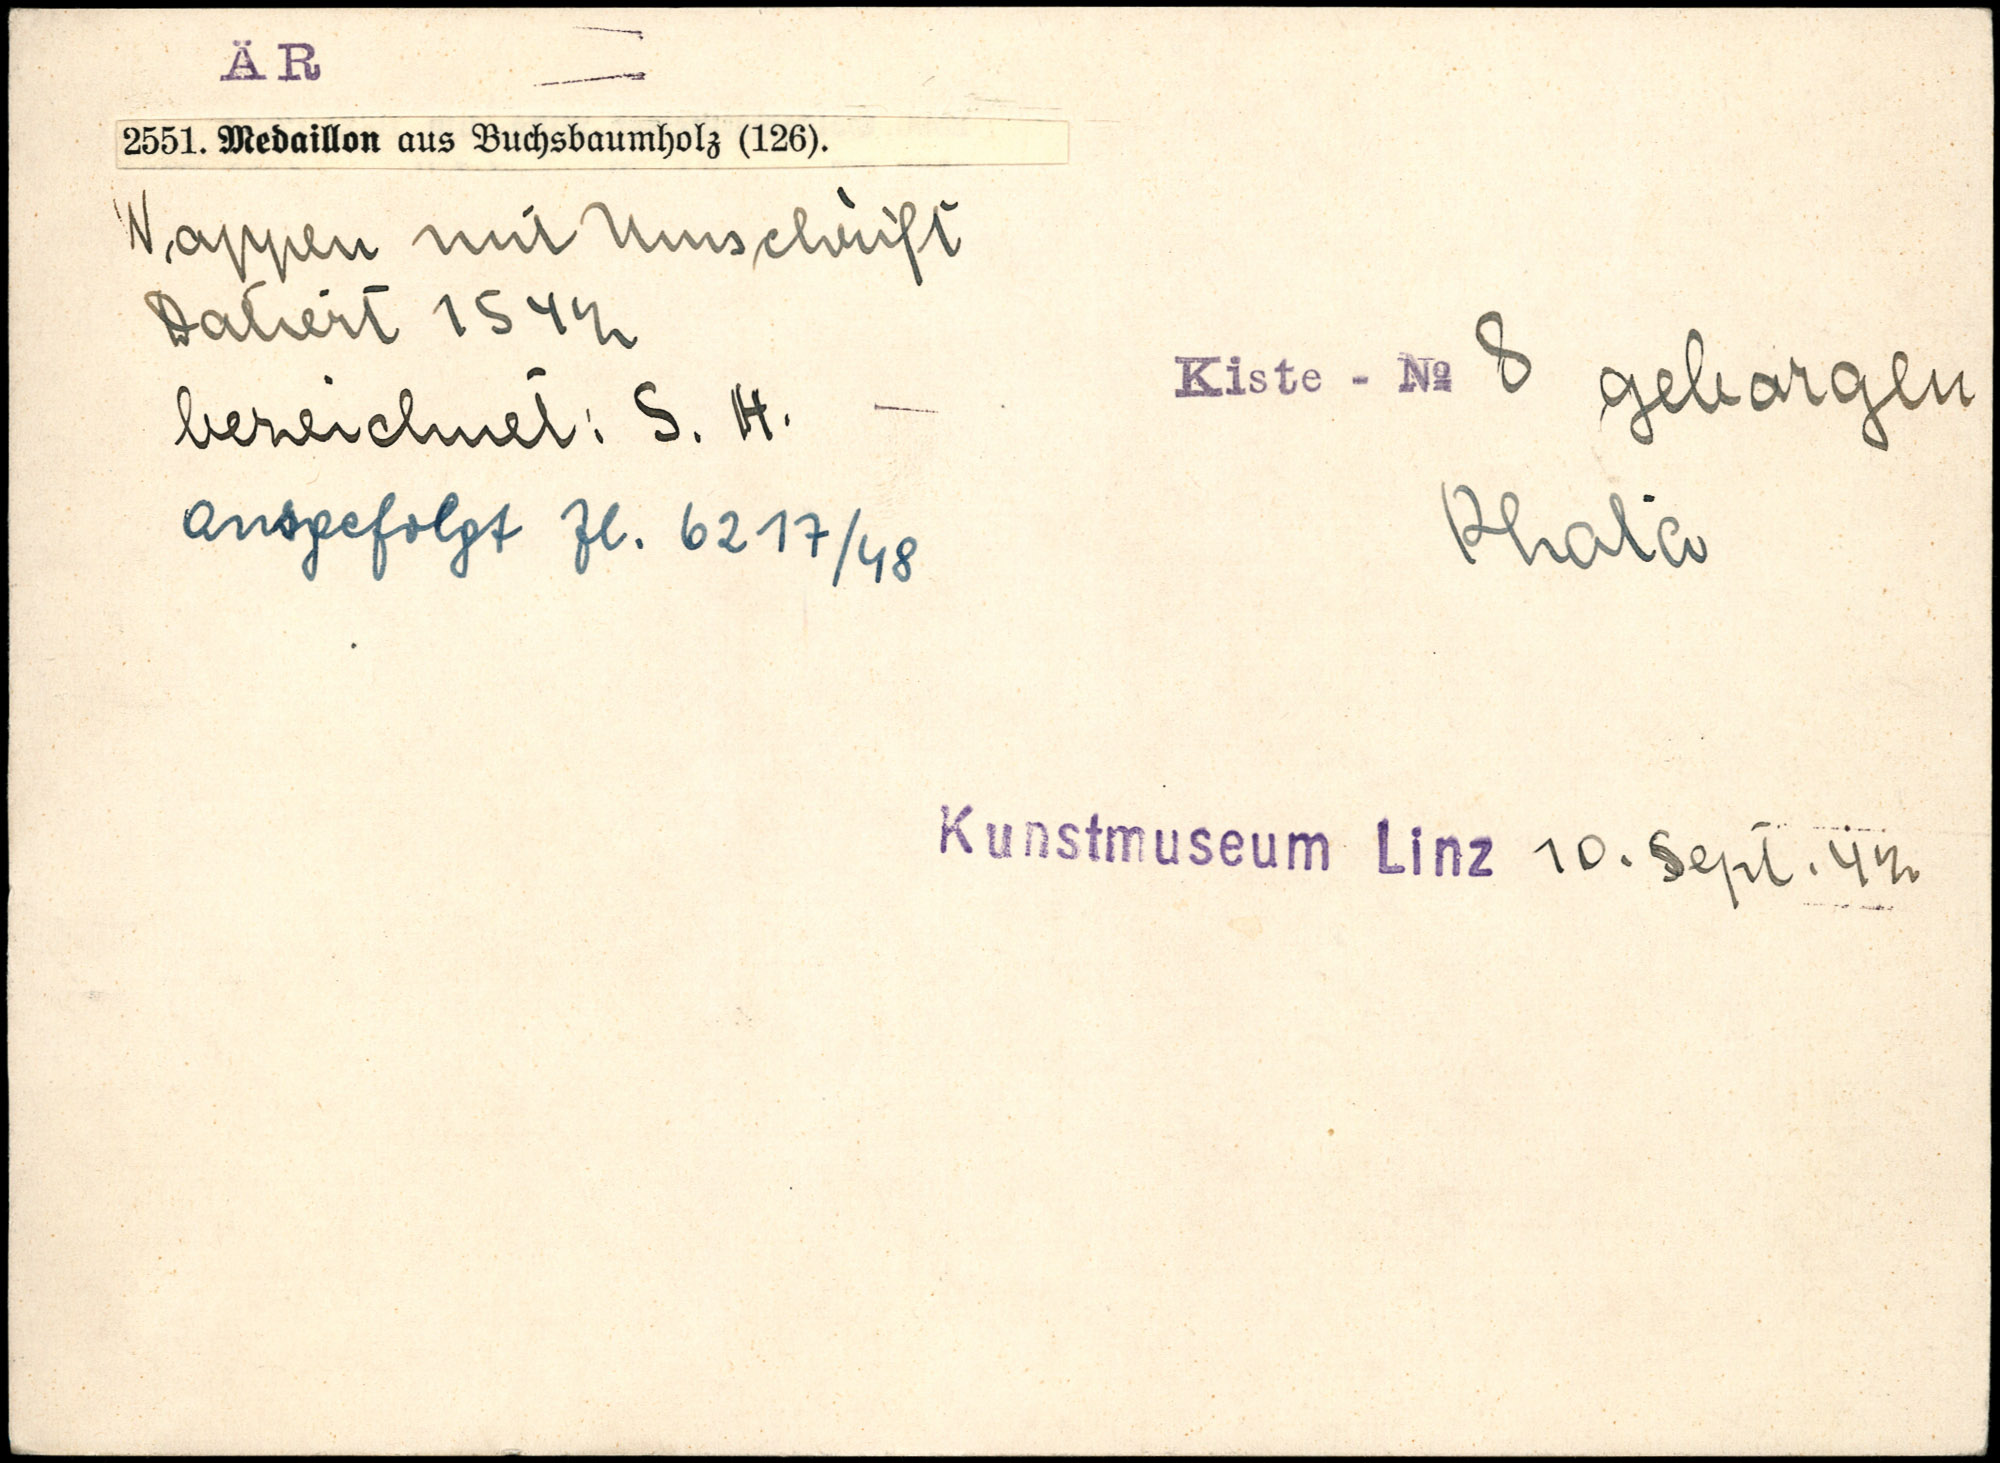 ÄR
2551. Medaillon aus Buchsbaumholz (126).
Wappen mit Umschrift
Datiert 1542
bezeichnet: S. H.
ausgefolgt Zl. 6217/48
Kiste - № 8 geborgen
Photo
Kunstmuseum Linz 10. Sept. 42